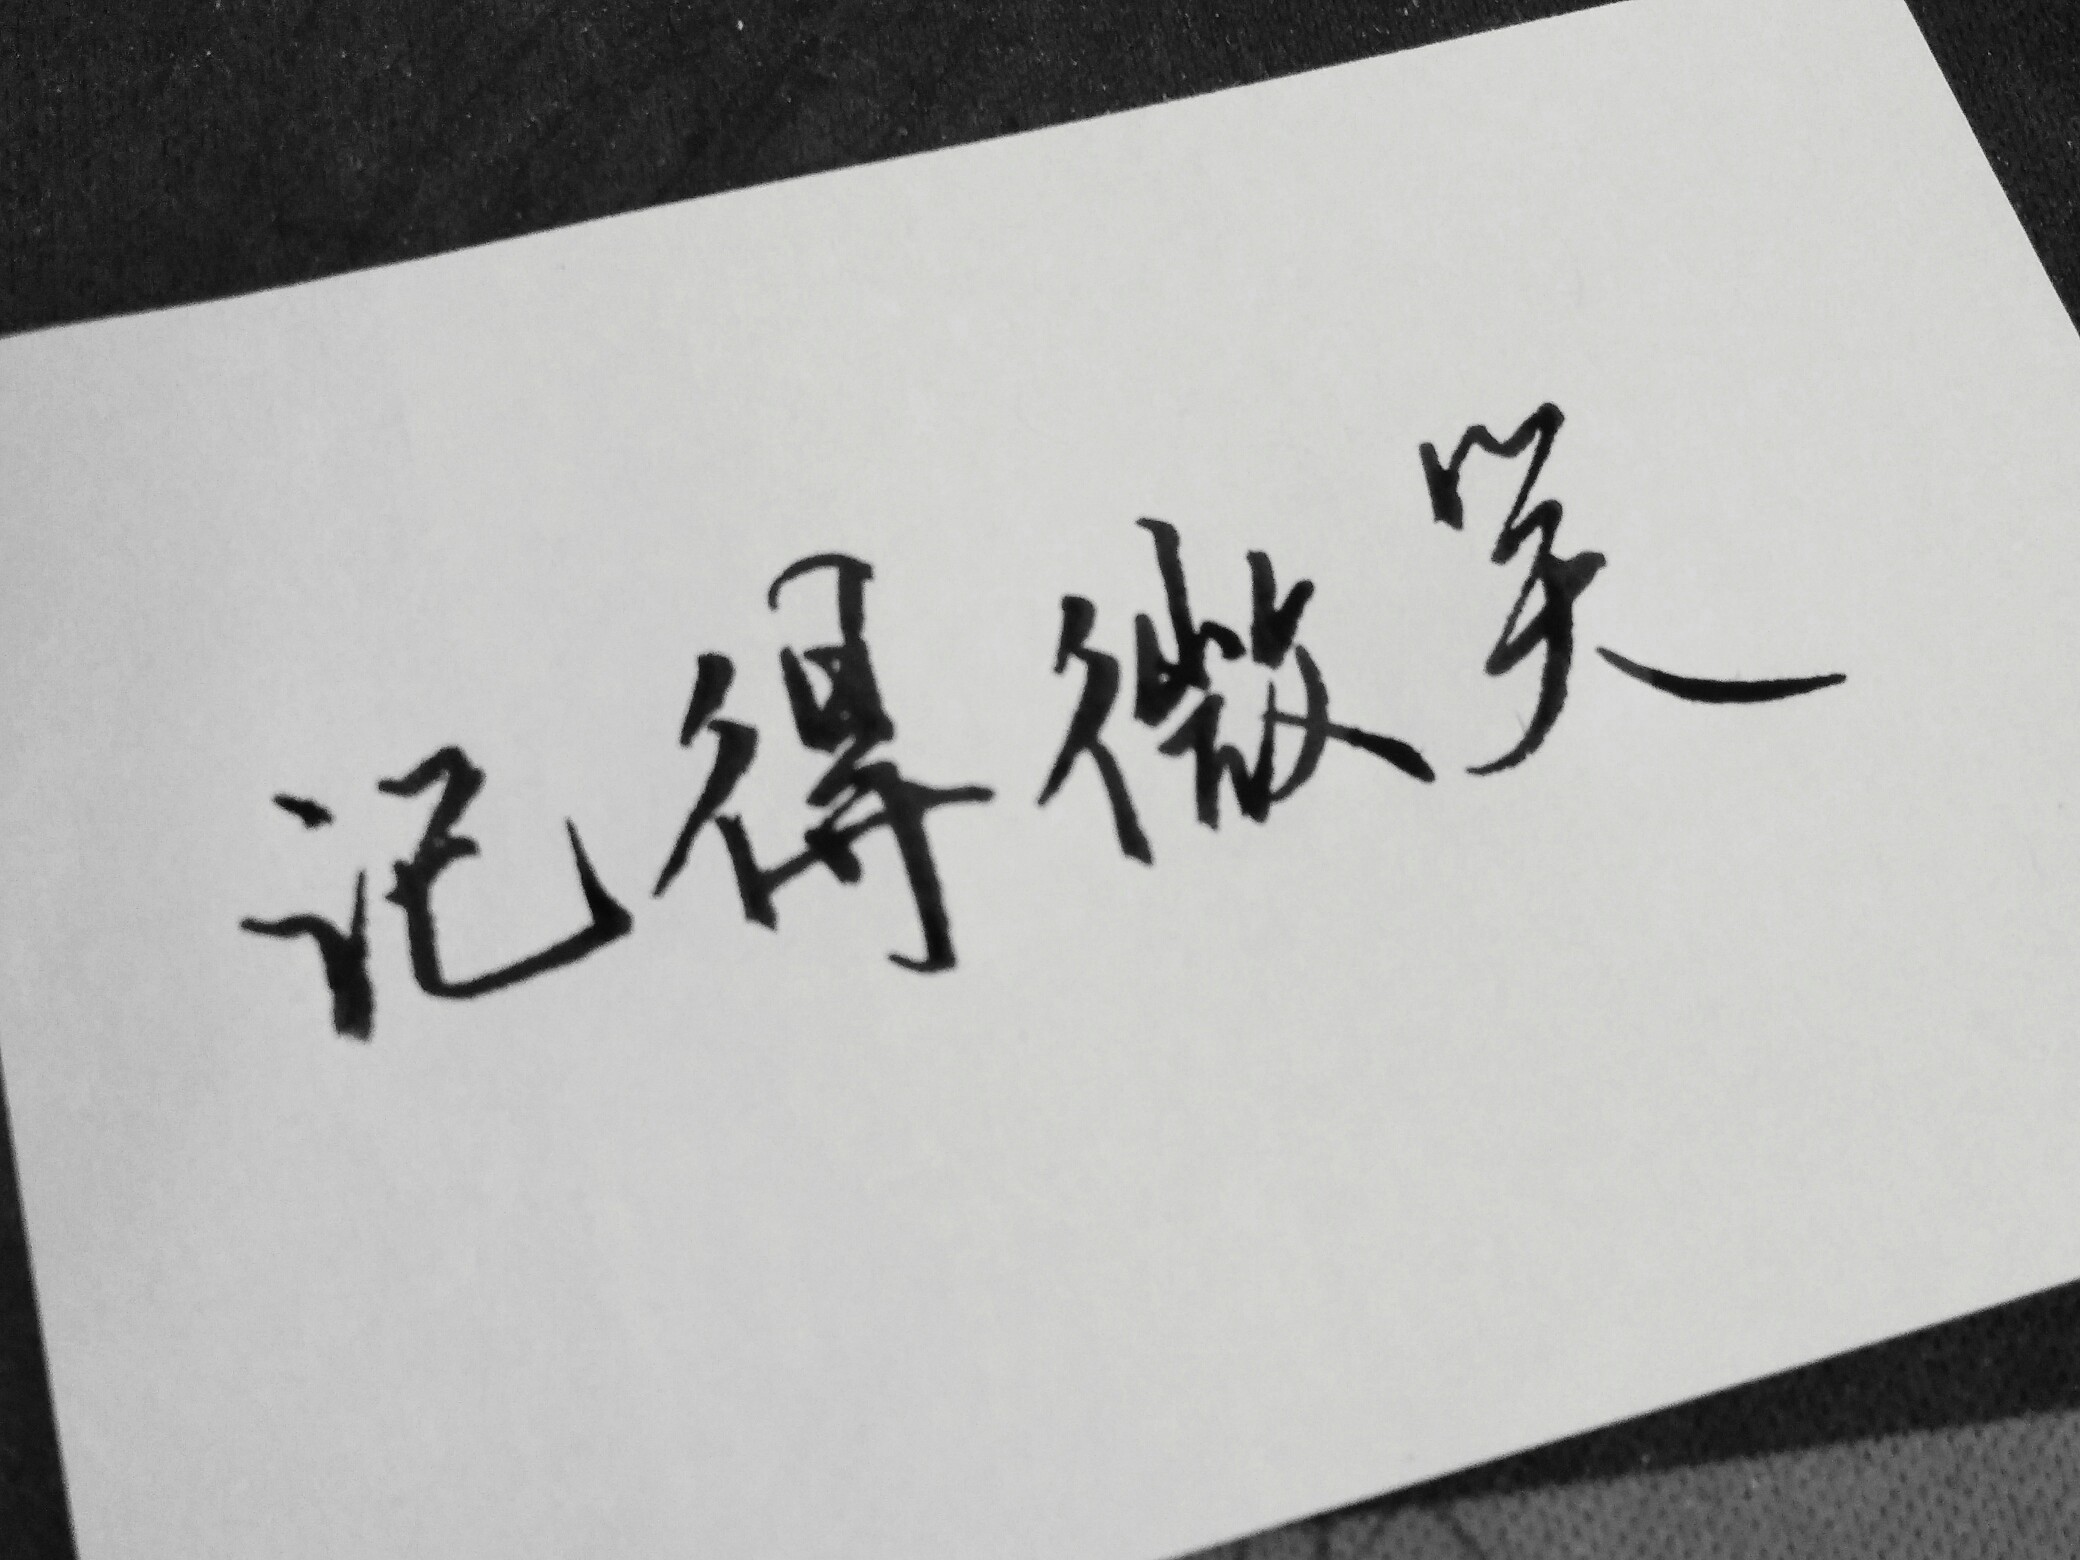 记得微笑